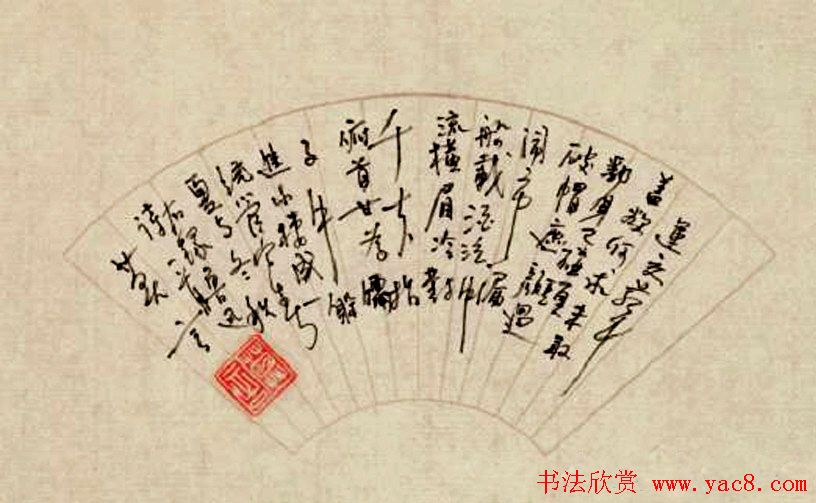 運交華
蓋欲何
求未敢
翻身已
碰頭
破帽遮
顏過
鬧市
漏
船載酒泛中
流橫眉冷對
千夫指
俯首甘為孺
子牛
進小樓成一
統管它
夏與冬秋
右錄魯迅
詩
书法欣赏 www.yac8.com